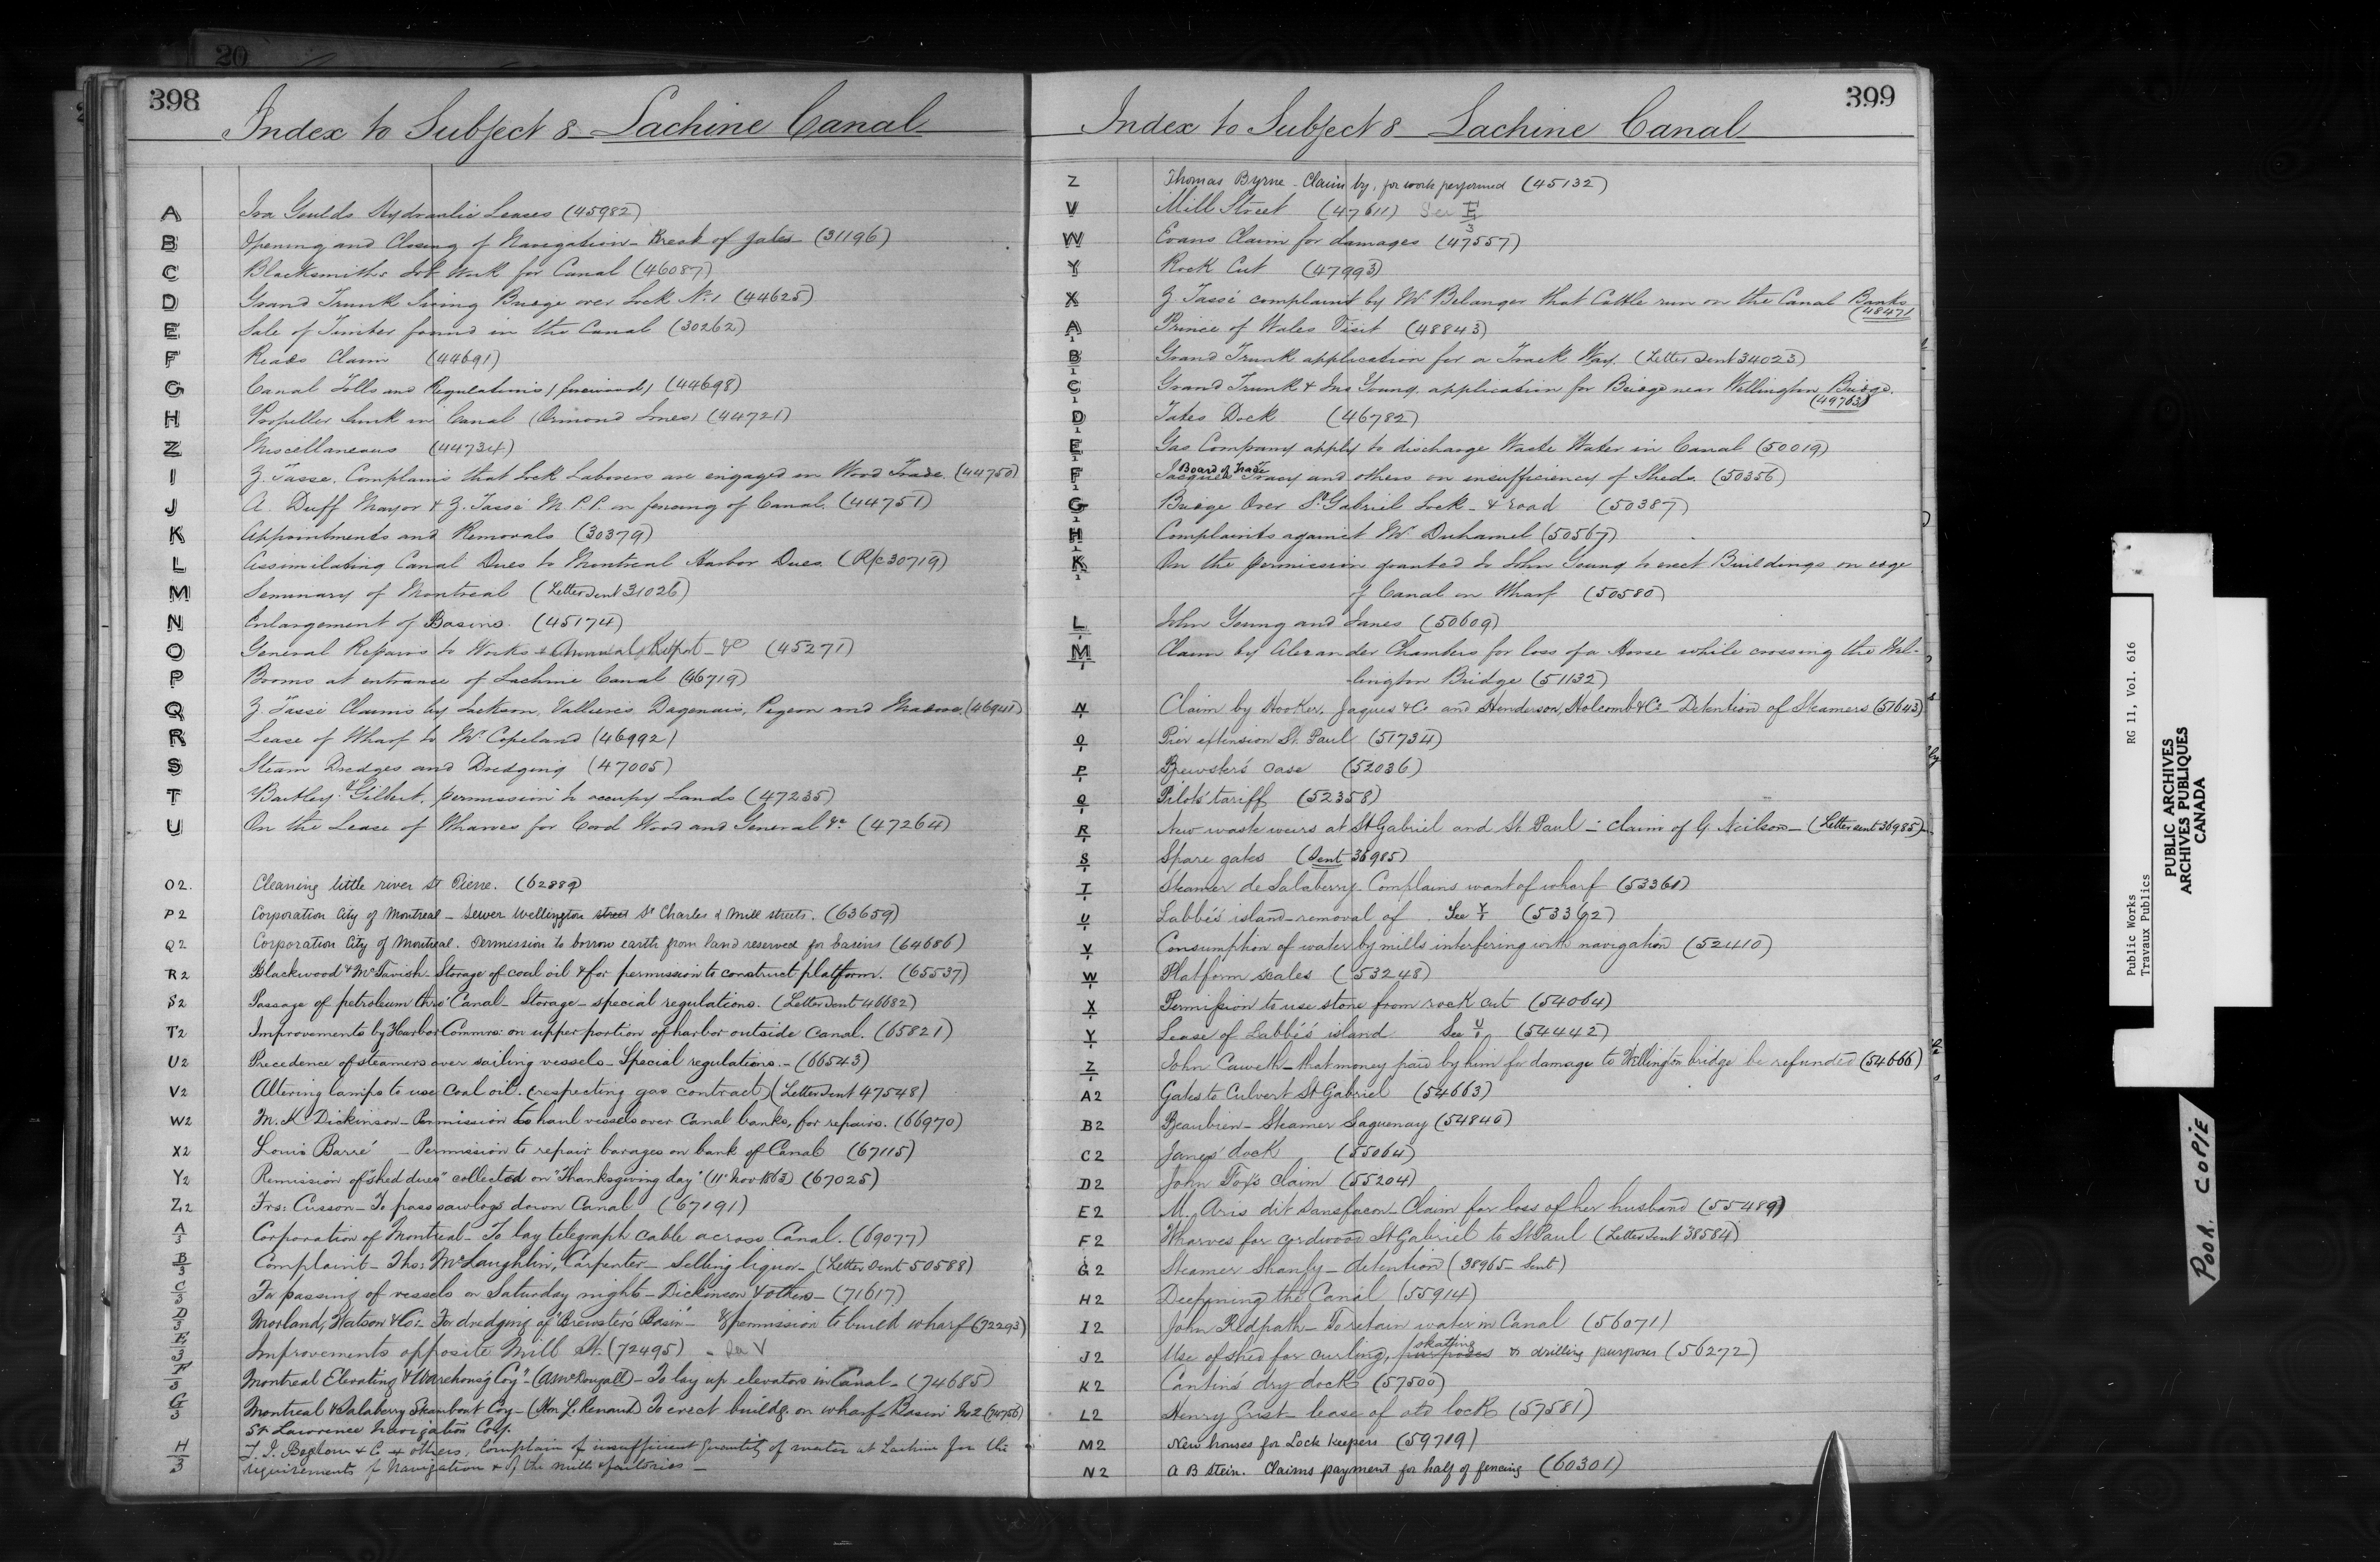 20
398
Index to Subject 8 Lachine Canal
A Ira Goulds Hydraulic Leases (45982)
B Opening and Closing of Navigation - Break of gates (31196)
C Blacksmiths Work for Canal (46087)
D Grand Trunk Swing Bridge over Lock No. 1 (44625)
E Sale of Timber found in the Canal (30262)
F Reads Claim (44691)
G Canal Tolls and Regulations (firewood) (44698)
H Propeller Sunk in Canal (Ormond Jones) (44721)
Z Miscellaneous (44734)
I Z. Tasse. Complains that Lock Laborers are engaged in Wood Trade. (44750)
J A. Duff Mayor & Z. Tassé M.P.P. on fencing of Canal. (44751)
K Appointments and Removals (30379)
L Assimilating Canal Dues to Montreal Harbor Dues. (R/c 30719)
M Seminary of Montreal (Letter Sent 31026)
N Enlargement of Basins. (45174)
O General Repairs to Works & Annual Report - &c (45271)
P Booms at entrance of Lachine Canal (46719)
Q Z. Tassé Claims by Jackson, Vallieres Dagenais, Pigeon and (46941)
R Lease of Wharf to Mr. Copeland (46992)
S Steam Dredges and Dredging (47005)
T Bartley & Gilbert, permission to occupy Lands (47235)
U On the Lease of Wharves for Cord Wood and General &c (47264)
O2. Cleaning little river St Pierre. (62889)
P2 Corporation City of Montreal - Sewer Wellington street St Charles & Mill streets. (63659)
Q2 Corporation City of Montreal. Permission to borrow earth from land reserved for basins (64686)
R2 Blackwood & McTavish - Storage of coal oil & for permission to construct platform. (65537)
S2 Passage of petroleum thro' Canal - Storage - special regulations. (Letter Sent 46682)
T2 Improvements by Harbor Commrs: on upper portion of harbor outside Canal. (65821)
U2 Precedence of steamers over sailing vessels - Special regulations. - (66543)
V2 Altering lamps to use Coal oil. (respecting gas contract) (Letter Sent 47548)
W2 M. K. Dickinson - Permission to haul vessels over Canal banks, for repairs. (66970)
X2 Louis Barré - Permission to repair barages on bank of Canal (67115)
Y2 Remission of "shed dues" collected on "Thanksgiving day" (11th Nov 1863) (67025)
Z2 Frs: Cusson - To pass sawlogs down Canal (67191)
A/3 Corporation of Montreal - To lay telegraph cable across Canal. (69077)
B/3 Complaint - Thos: McLaughlin, Carpenter - Selling liquor - (Letter Sent 50588)
C/3 For passing of vessels on Saturday night - Dickinson & others - (71617)
D/3 Morland, Watson & Co: - For dredging of "Brewster's Basin" - & permission to build wharf (72293)
E/3 Improvements opposite Mill St. (72495) - See V
F/3 Montreal Elevating & Warehous'g Coy. - (A McDougall) - To lay up elevators in Canal - (74685)
G/3 Montreal & Salaberry Steamboat Coy - (Hon L. Renaud) To erect buildg. on wharf Basin No 2 (74756)
St Lawrence Navigation Coy.
H/3 & Co & others, Complain of insufficient quantity of water at Lachine for the
requirements of Navigation & of the mills & factories -
399
Index to Subject 8 Lachine Canal
Z Thomas Byrne - Claim by, for work performed (45132)
V Mill Street (47611) See E/3
W Evans Claim for damages (47557)
Y Rock Cut (47993)
X Z Tassé complaint by Mr Belanger that Cattle run on the Canal Banks
(48471
A/1 Prince of Wales Visit (48843)
B/1 Grand Trunk application for a Track Way. (Letter Sent 34023)
C/1 Grand Trunk & Jno Young, application for Bridge near Wellington Bridge.
(49763)
D/1 Tates Dock (46782)
E/1 Gas Company apply to discharge Waste Water in Canal (50019)
Board of Trade
F/1 Jacques Tracy and others on insufficiency of Sheds. (50356)
G/1 Bridge Over St. Gabriel Lock - & road (50387)
H/1 Complaints against Mr. Duhamel (50567)
K/1 On the permission granted to John Young to erect Buildings on edge
of Canal on Wharf (50580)
L/1 John Young and Janes (50609)
M/1 Claim by Alexander Chambers for loss of a Horse while crossing the Wel-
lington Bridge (51132)
N/1 Claim by Hooker, Jaques & Co. and Henderson, Holcomb & Co - Detention of Steamers (51643)
O/1 Pier extension St. Paul (51734)
P/1 Brewster's case (52036)
Q/1 Pilots' tariff (52358)
R/1 New waste weirs at St Gabriel and St Paul - claim of G. Neilson - (Letter sent 36985)
S/1 Spare gates (Sent 36985)
T/1 Steamer de Salaberry - Complains want of wharf (53361)
U/1 Labbé's island - removal of See Y/1 (53362)
V/1 Consumption of water by mills interfering with navigation (52410)
W/1 Platform scales (53248)
X/1 Permission to use stone from rock cut (54064)
Y/1 Lease of Labbé's island See U/1 (54442)
Z/1 John Caweth - that money paid by him for damage to Wellington bridge be refunded (54666)
A2 Gates to Culvert St Gabriel (54663)
B2 Beaubien - Steamer Saguenay (54846)
C2 Janes' dock (55064)
D2 John Fox's claim (55204)
E2 M. Aris dit Sansfacon - Claim for loss of her husband (55489)
F2 Wharves for cordwood St Gabriel to St Paul (Letter Sent 38584)
G2 Steamer Shanly - detention (38965 - Sent)
H2 Deepening the Canal (55914)
I2 John Redpath - To retain water in Canal (56071)
skating
J2 Use of shed for curling, purposes & drilling purposes (56272)
K2 Cantin's dry dock (57500)
L2 Henry Grist - lease of old lock (57581)
M2 New houses for Lock keepers (59719)
N2 A B Stein. Claims payment for half of fencing (60301)
Public Works RG 11, Vol. 616
Travaux Publics
PUBLIC ARCHIVES
ARCHIVES PUBLIQUES
CANADA
POOR COPIE